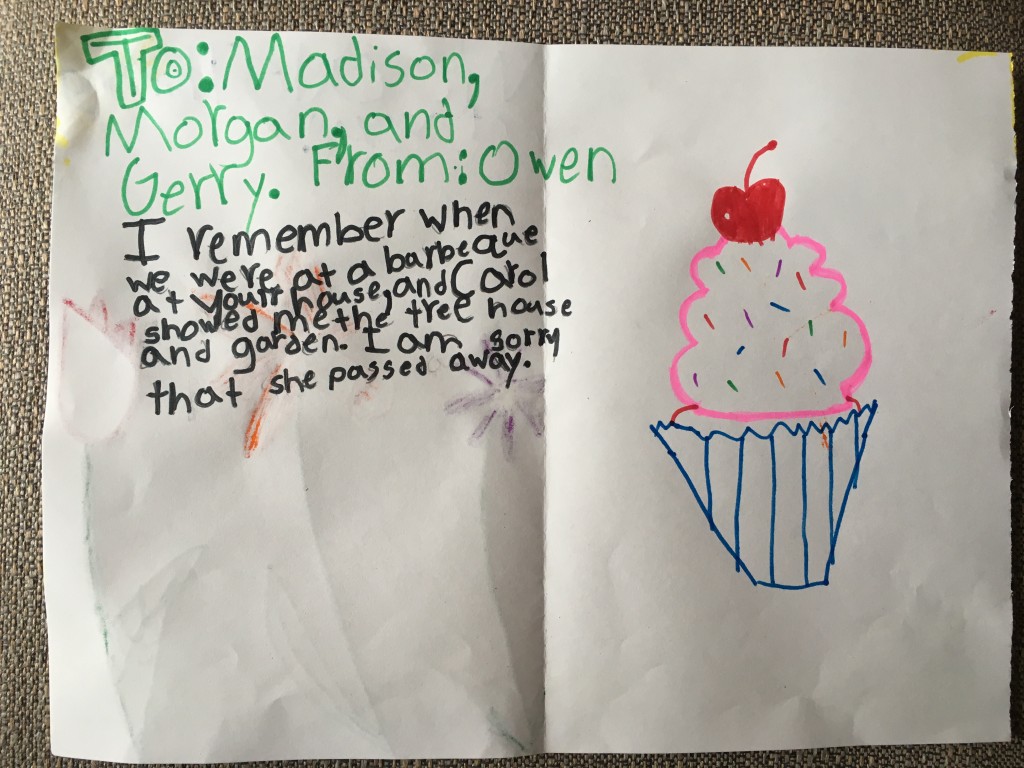 To: Madison,
Morgan, and
Gerry. From: Owen
I remember when
we were at a barbeque
at your house, and Carol
showed me the tree house
and garden. I am sorry
that she passed away.